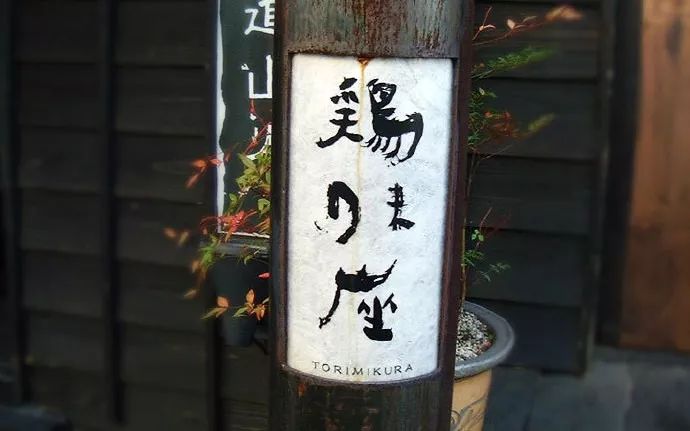 鶏味座
TORIMIKURA
道山